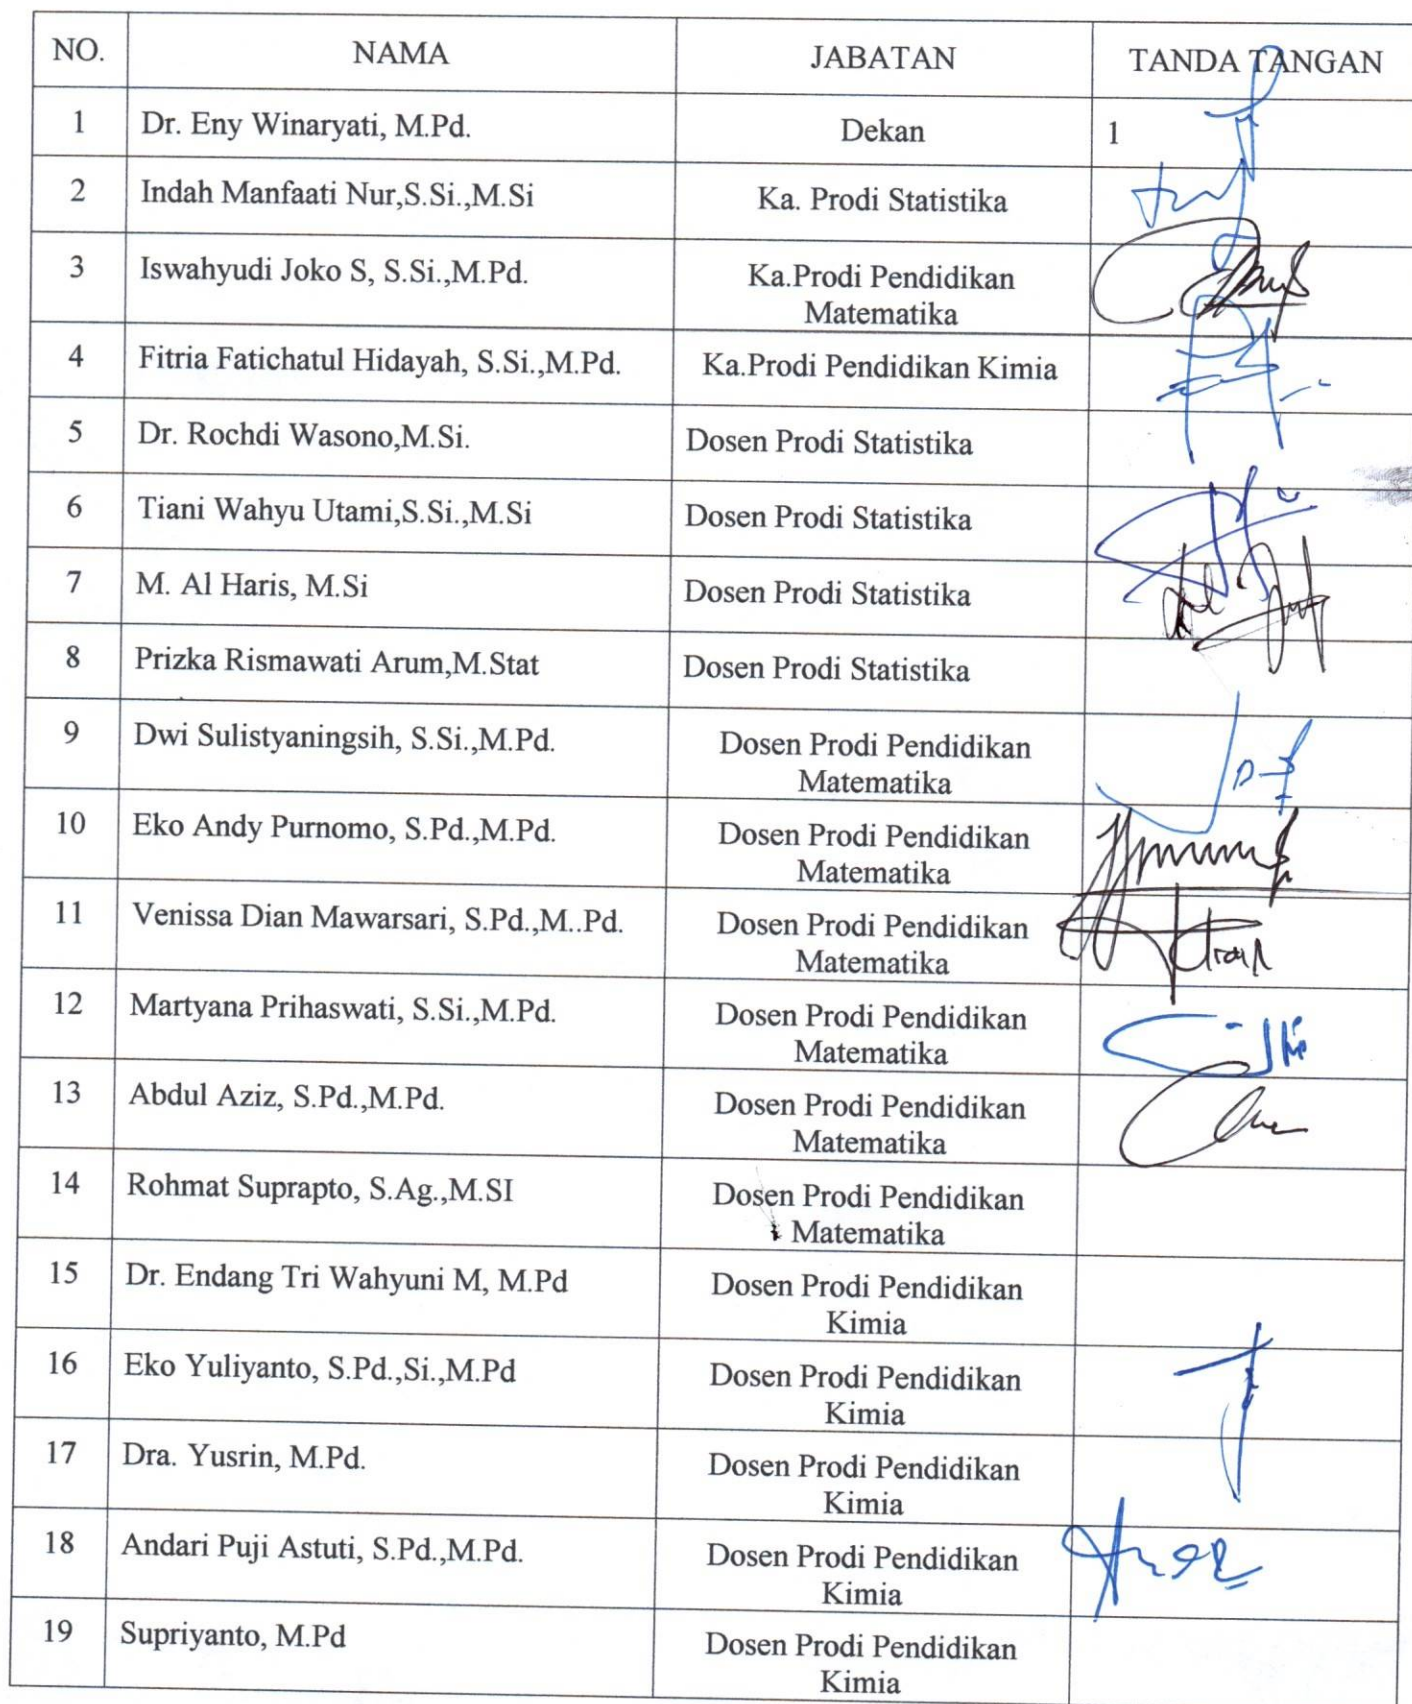 NO. NAMA JABATAN TANDA TANGAN
1 Dr. Eny Winaryati, M.Pd. Dekan 1
2 Indah Manfaati Nur,S.Si.,M.Si Ka. Prodi Statistika
3 Iswahyudi Joko S, S.Si.,M.Pd. Ka.Prodi Pendidikan
Matematika
4 Fitria Fatichatul Hidayah, S.Si.,M.Pd. Ka.Prodi Pendidikan Kimia
5 Dr. Rochdi Wasono,M.Si. Dosen Prodi Statistika
6 Tiani Wahyu Utami,S.Si.,M.Si Dosen Prodi Statistika
7 M. Al Haris, M.Si Dosen Prodi Statistika
8 Prizka Rismawati Arum,M.Stat Dosen Prodi Statistika
9 Dwi Sulistyaningsih, S.Si.,M.Pd. Dosen Prodi Pendidikan
Matematika
10 Eko Andy Purnomo, S.Pd.,M.Pd. Dosen Prodi Pendidikan
Matematika
11 Venissa Dian Mawarsari, S.Pd.,M..Pd. Dosen Prodi Pendidikan
Matematika
12 Martyana Prihaswati, S.Si.,M.Pd. Dosen Prodi Pendidikan
Matematika
13 Abdul Aziz, S.Pd.,M.Pd. Dosen Prodi Pendidikan
Matematika
14 Rohmat Suprapto, S.Ag.,M.SI Dosen Prodi Pendidikan
Matematika
15 Dr. Endang Tri Wahyuni M, M.Pd Dosen Prodi Pendidikan
Kimia
16 Eko Yuliyanto, S.Pd.,Si.,M.Pd Dosen Prodi Pendidikan
Kimia
17 Dra. Yusrin, M.Pd. Dosen Prodi Pendidikan
Kimia
18 Andari Puji Astuti, S.Pd.,M.Pd. Dosen Prodi Pendidikan
Kimia
19 Supriyanto, M.Pd Dosen Prodi Pendidikan
Kimia